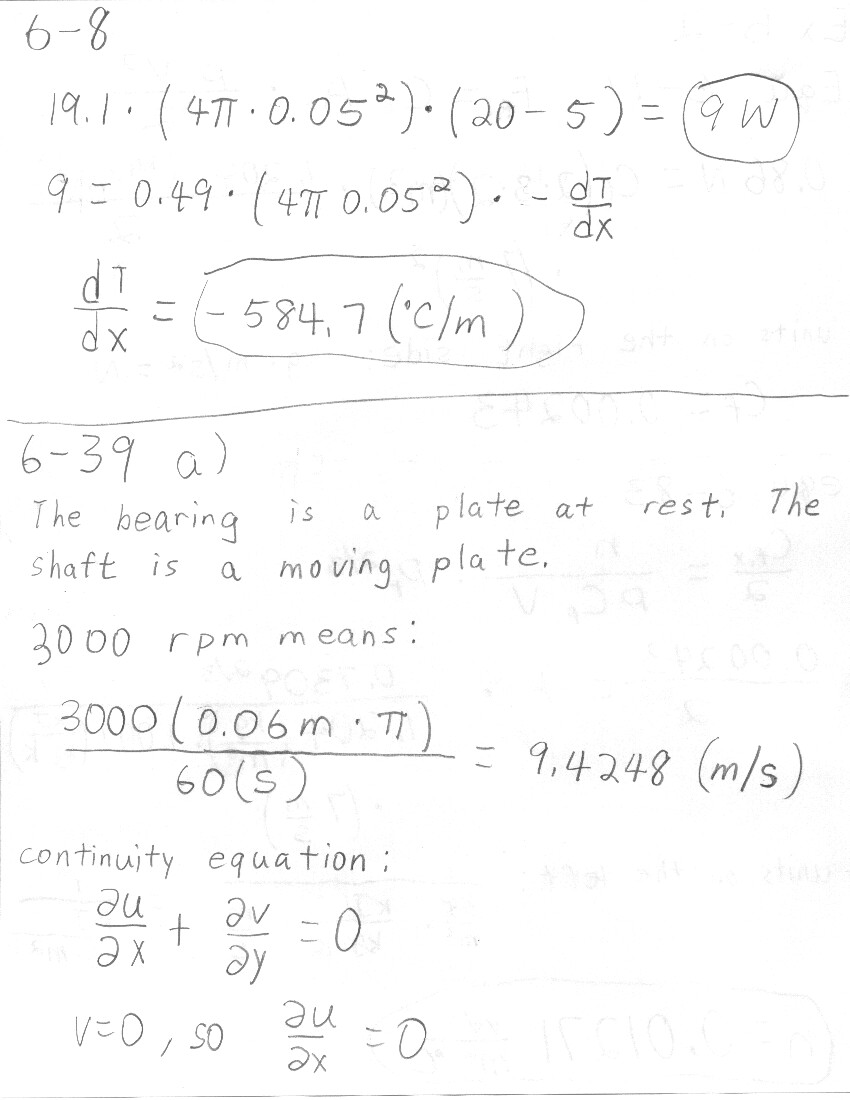 6-8
19.1 · (4π · 0.05²) · (20 - 5) = 9 W
9 = 0.49 · (4π 0.05²) · - dT/dx
dT/dx = - 584.7 (°C/m)
6-39 a)
The bearing is a plate at rest. The
shaft is a moving plate.
3000 rpm means:
3000(0.06m · π)/60(s) = 9.4248 (m/s)
continuity equation:
∂u/∂x + ∂v/∂y = 0
v=0, so ∂u/∂x = 0